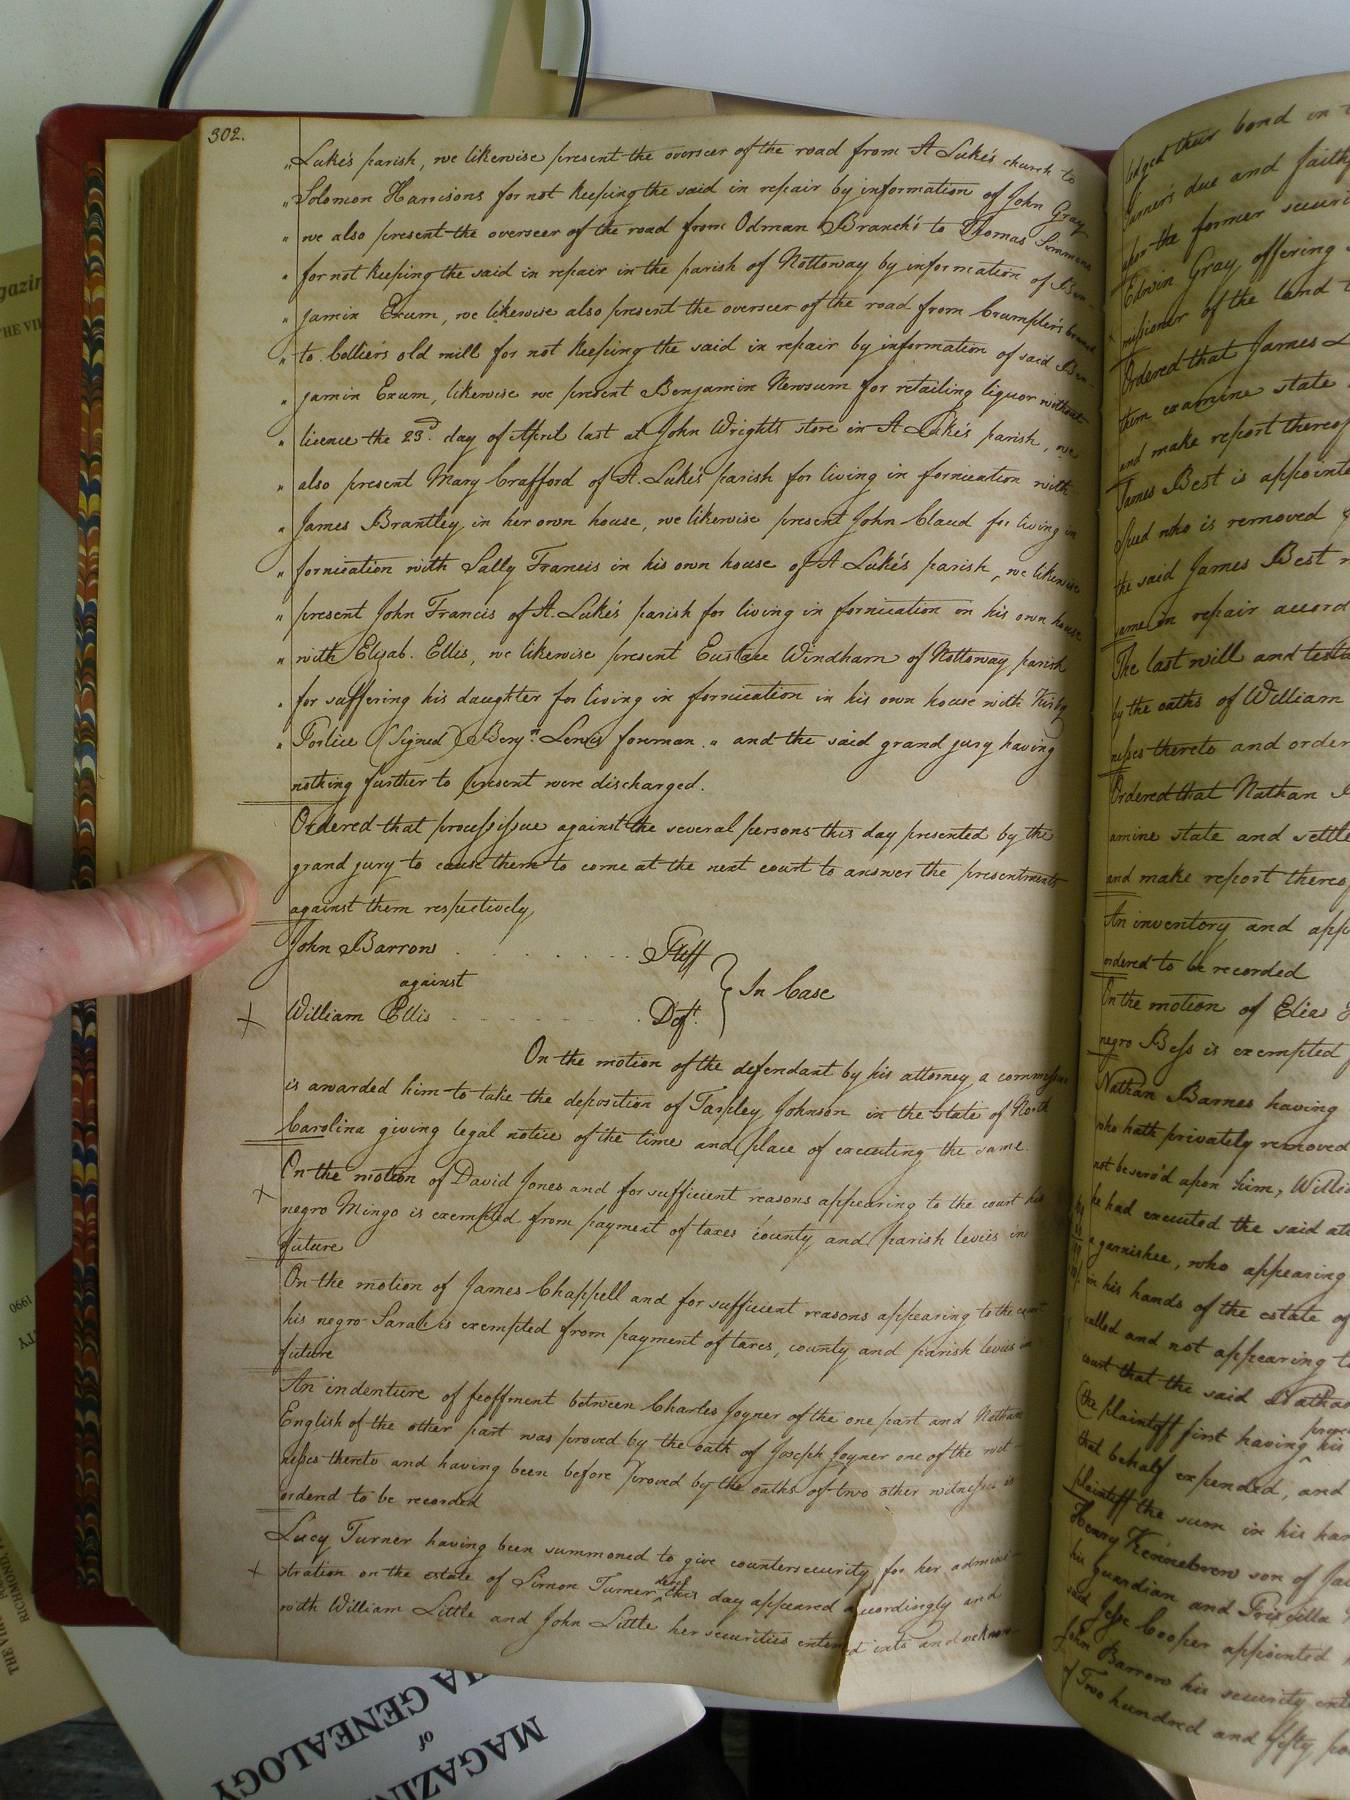 302.
" Luke's parish, we likewise present the overseer of the road from St Luke's church to
" Solomon Harrisons for not keeping the said in repair by information of John Gray
" we also present the overseer of the road from Odman Branch's to Thomas Simmons
" for not keeping the said in repair in the parish of Nottoway by information of Ben-
" jamin Exum, we likewise also present the overseer of the road from Crumpler's branch
" to Colliers old mill for not keeping the said in repair by information of said Ben-
" jamin Exum, likewise we present Benjamin Newsum for retailing liquor without
" licence the 23d. day of April last at John Wrights store in St Luke's parish, we
" also present Mary Crafford of St. Luke's parish for living in fornication with
" James Brantley in her own house, we likewise present John Claud for living in
" fornication with Sally Francis in his own house of St Luke's parish, we likewise
" present John Francis of St. Luke's parish for living in fornication in his own house
" with Elizab. Ellis, we likewise present Eustace Windham of Nottoway parish
" for suffering his daughter for living in fornication in his own house with Kirby
" Porlice (Signed) Benjn. Lewis foreman. " and the said grand jury having
nothing further to present were discharged.
Ordered that process issue against the several persons this day presented by the
grand jury to cause them to come at the next court to answer the presentments
against them respectively,
John Barrow . . . . . . . Pltff
against } In Case
William Ellis . . . . . Deft.
On the motion of the defendant by his attorney a commission
is awarded him to take the deposition of Tarpley Johnson in the State of North
Carolina giving legal notice of the time and place of executing the same.
On the motion of David Jones and for sufficient reasons appearing to the court his
negro Mingo is exempted from payment of taxes county and parish levies in
future
On the motion of James Chappell and for sufficient reasons appearing to the court
his negro Sarah is exempted from payment of taxes, county and parish levies in
future
An indenture of feoffment between Charles Joyner of the one part and Nathan
English of the other part was proved by the oath of Joseph Joyner one of the wit-
nesses thereto and having been before proved by the oaths of two other witnesses is
ordered to be recorded
Lucy Turner having been summoned to give countersecurity for her admini-
stration on the estate of Simon Turner decd this day appeared accordingly and
with William Little and John Little her securities entered into and acknow-
ledged their bond in
Turner's due and faith
upon the former securi
Edwin Gray offering
missioner of the land
Ordered that James
them examine state
and make report thereof
James Best is appointe
who is removed
the said James Best
same in repair accord
The last will and testa
by the oaths of William
nesses thereto and order
Ordered that Nathan
amine state and settle
and make report thereof
An inventory and app
ordered to be recorded
On the motion of Elias
negro Bess is exempted
Nathan Barnes having
who hath privately removed
not be serv'd upon him, Willia
he had executed the said att
a garnishee, who appearing
in his hands of the estate of
called and not appearing
court that the said Nathan
(the plaintiff first having his
that behalf expended, and
plaintiff the sum in his han
Henry Kennebrew son of
his guardian and Priscilla
said Jesse Cooper appointed
John Barrow his security ent
of Two hundred and fifty po
MAGAZINE
of
GENEALOGY
1990
RICHMOND,